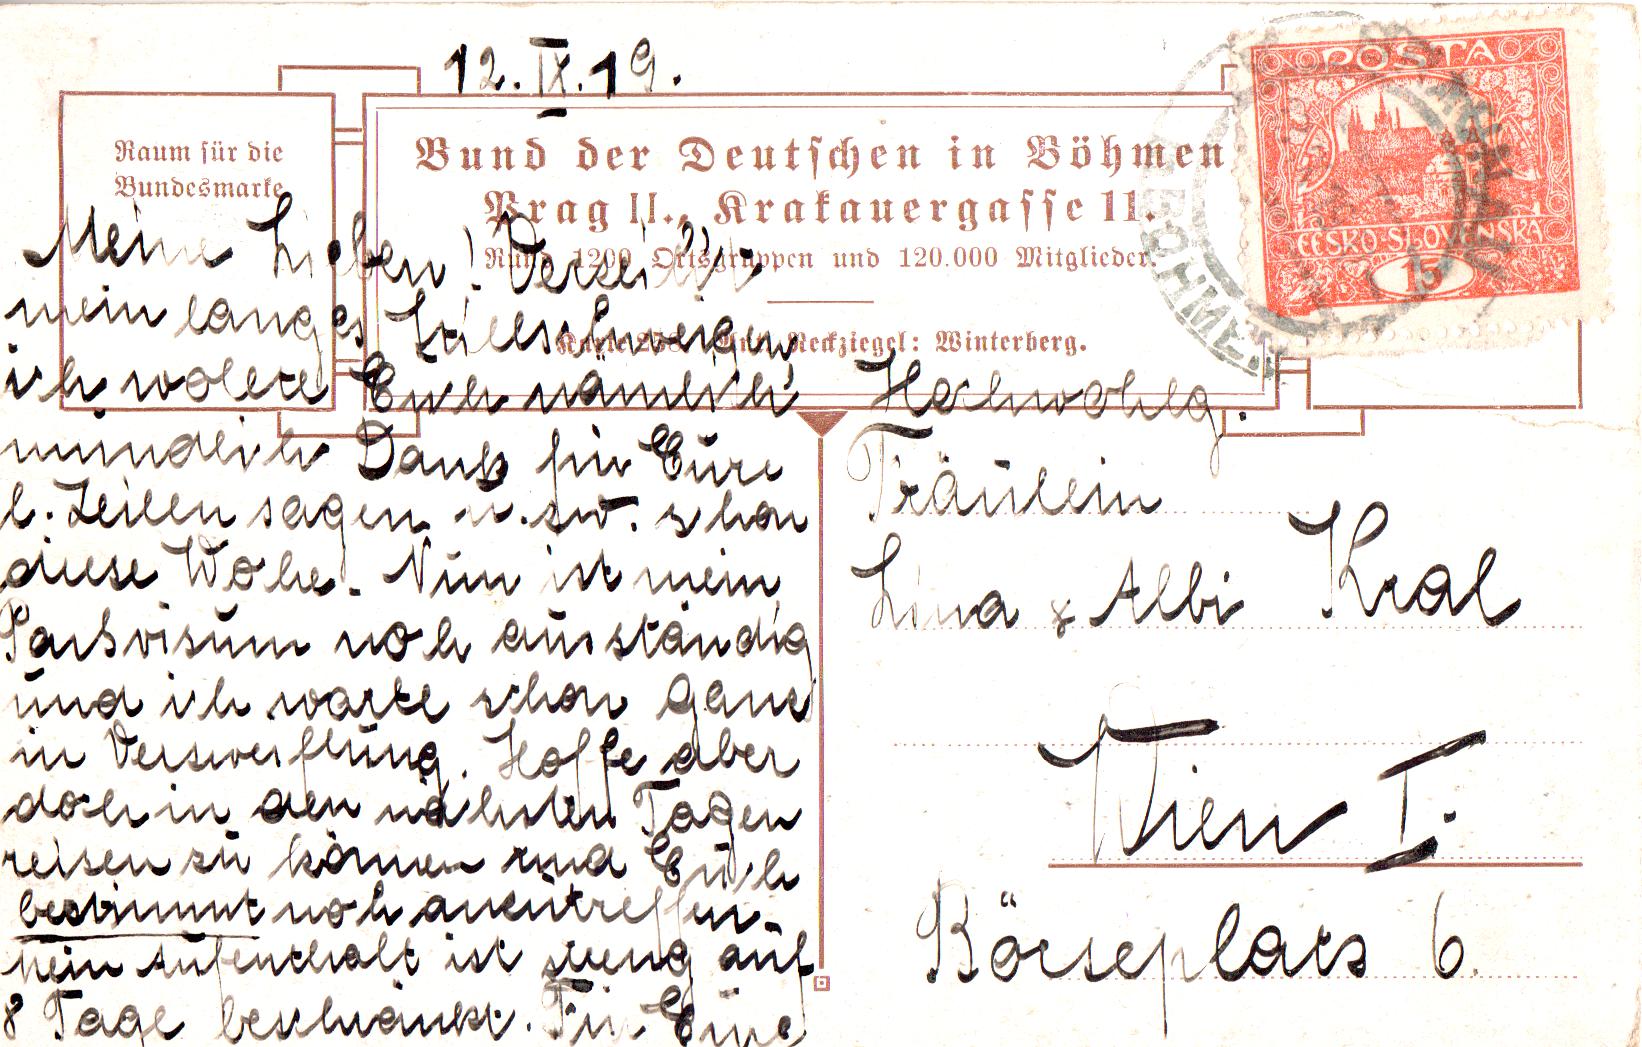 12.IX.19.
Raum für die
Bundesmarke
Bund der Deutschen in Böhmen
Prag II., Krakauergasse 11.
Rund 1200 Ortsgruppen und 120.000 Mitglieder.
Neckziegel: Winterberg.
POSTA
ČESKO-SLOVENSKA
15
Meine Lieben! Verzeiht
mein langes Stillschweigen,
ich wollte Euch nämlich
mündlich Dank für Eure
l. Zeilen sagen u.sw. schon
diese Woche. Nun ist mein
Paßvisum noch ausständig
und ich warte schon ganz
in Verzweiflung. Hoffe aber
doch in den nächsten Tagen
reisen zu können und Euch
bestimmt noch anzutreffen.
Mein Aufenthalt ist streng auf
8 Tage beschränkt. Für Eure
Hochwohlg.
Fräulein
Lina & Albi Kral
Wien I.
Börseplatz 6.